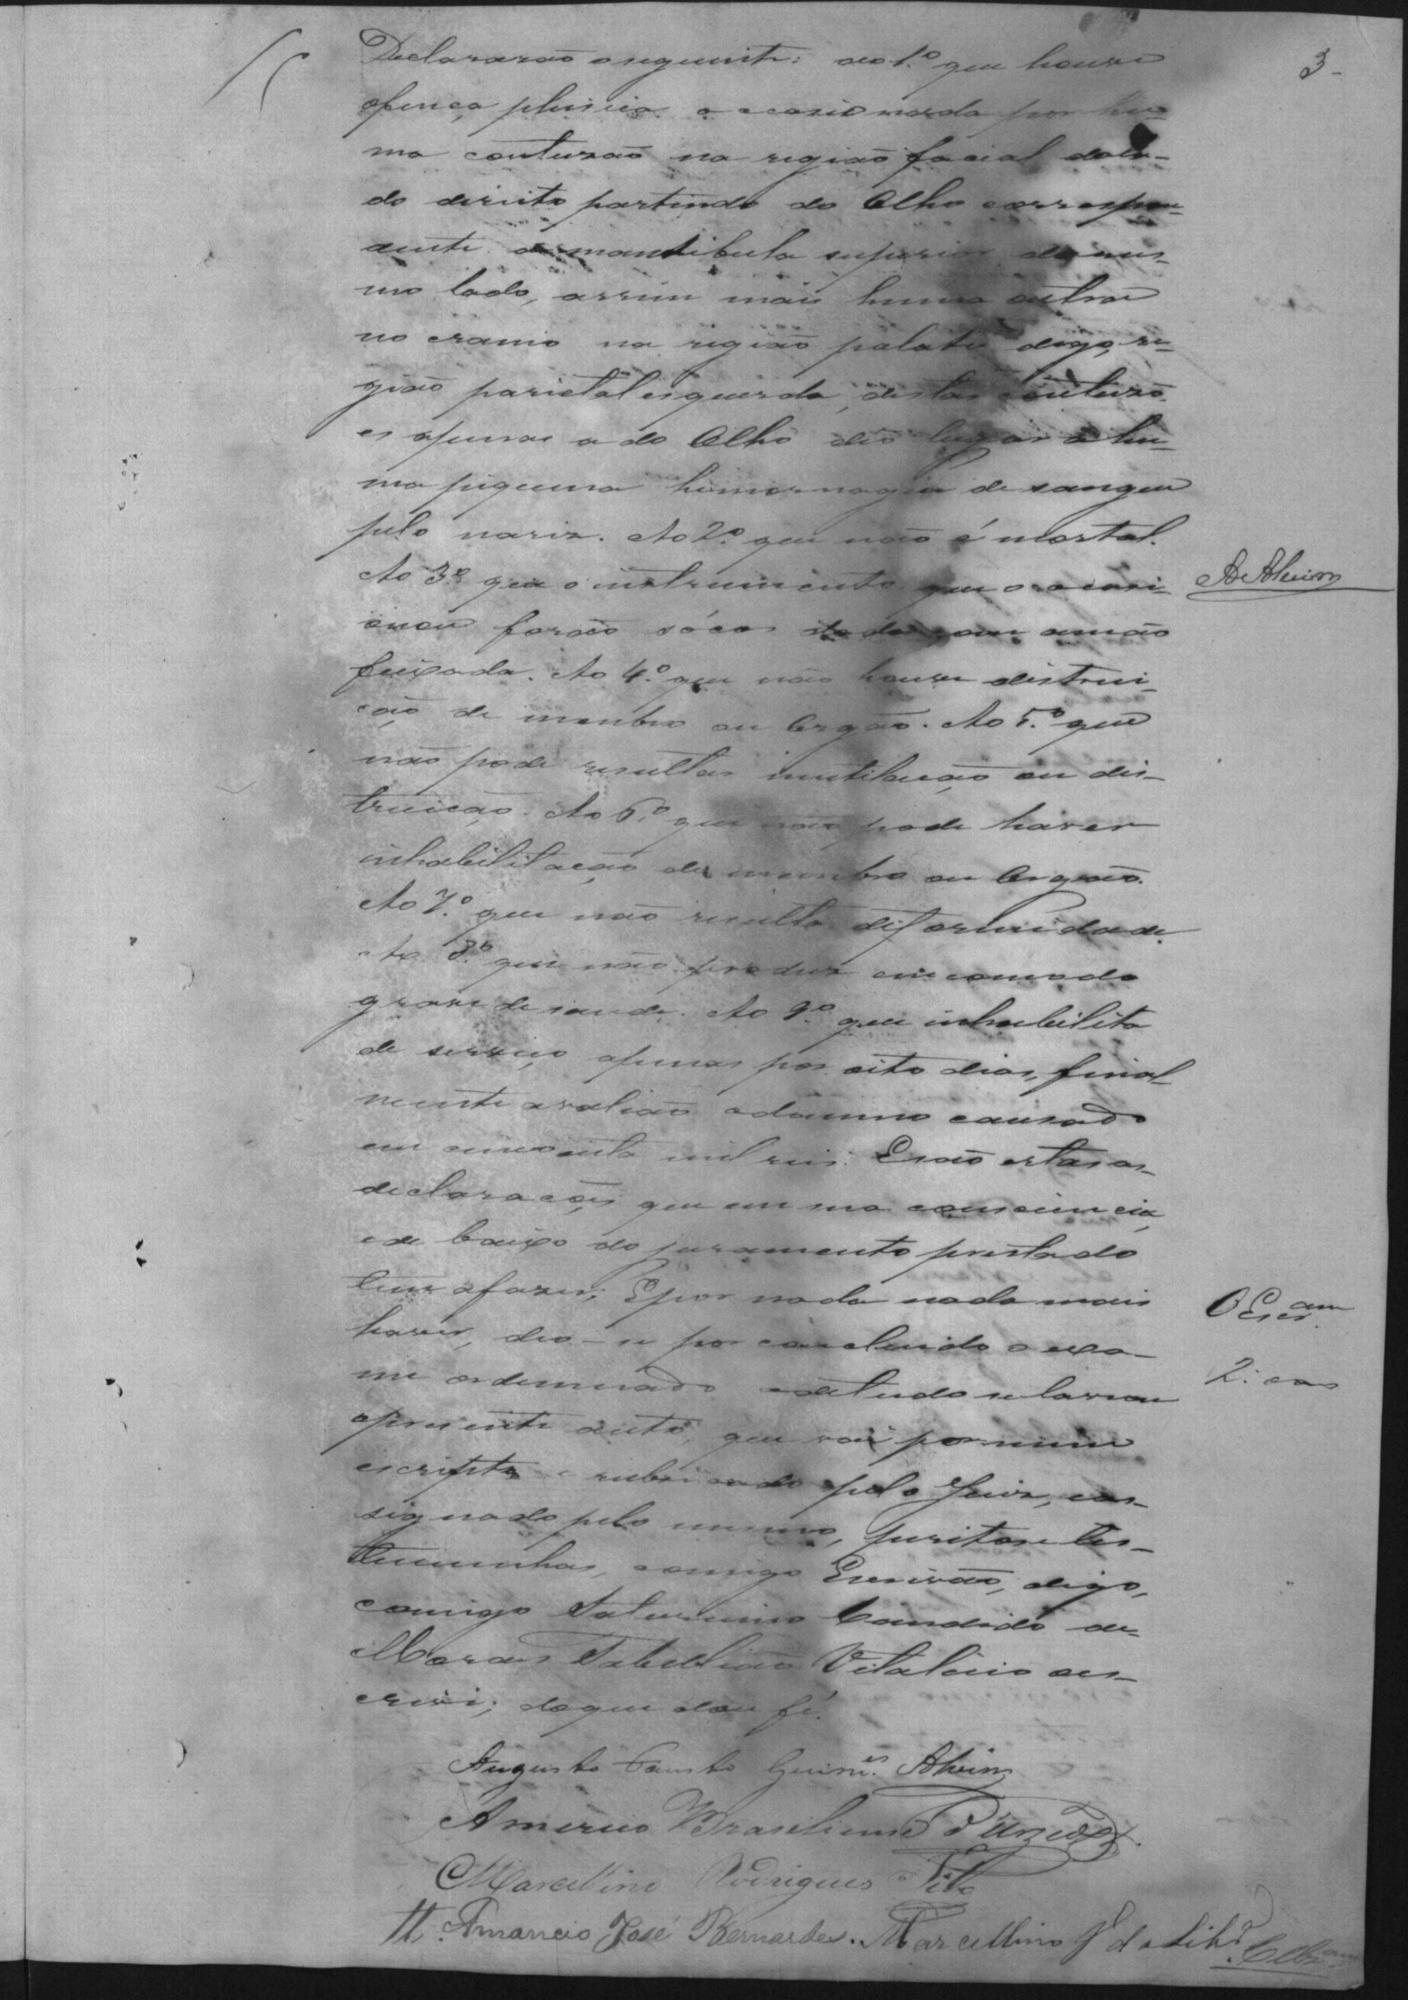 3
Declararão o seguinte: ao 1.º que houve
ofença phisica occasionada por hu-
ma contuzão na região facial do la-
do direito partindo do Olho correspon-
dente a mandibula superior do mes-
mo lado, assim mais huma outra
no craneo na região palate digo, re-
gião parietal esquerda, destas contuzõ-
es apenas a do Olho deo lugar a hu-
ma piquena himornagia de sangue
pelo nariz. Ao 2.º que não é mortal.
Ao 3.º que o instrumento que o occasi-
onou forão sócos dados com a mão
feixada. Ao 4.º que não houve distrui-
ção de membro ou Orgão. Ao 5.º que
não pode resultar mutilação ou dis-
truição. Ao 6.º que não pode haver
inhabilitação de membro ou Orgão.
Ao 7.º que não resulta diformidade.
Ao 8.º que não produz encomodo
grave de saude. Ao 9.º que inhabilita
de serviço apenas por oito dias, final-
mente avalião o damno causado
em cincoenta mil reis. E são estas as
declarações que em sua consciencia,
e de baixo do juramento prestado
tem a fazer; E por nada nada mais
haver, deo-se por concluido o exa-
me ordenado e de tudo se lavrou
o presente auto, que vai por mim
escripto e rubricado pelo Juiz, e as-
signado pelo mesmo, peritos e tes-
temunhas, comigo Escrivão, digo,
comigo Saturnino Candido de
Moraes Tabellião Vitalicio o es-
crevi; do que dou fé.
Augusto Fausto Guim.es Alvim
Americo Brasiliense
Marcellino Rodrigues
Tt. Amancio José Bernardes. Marcellino J. da Silv.ª
A Alvim
O Exam
2.